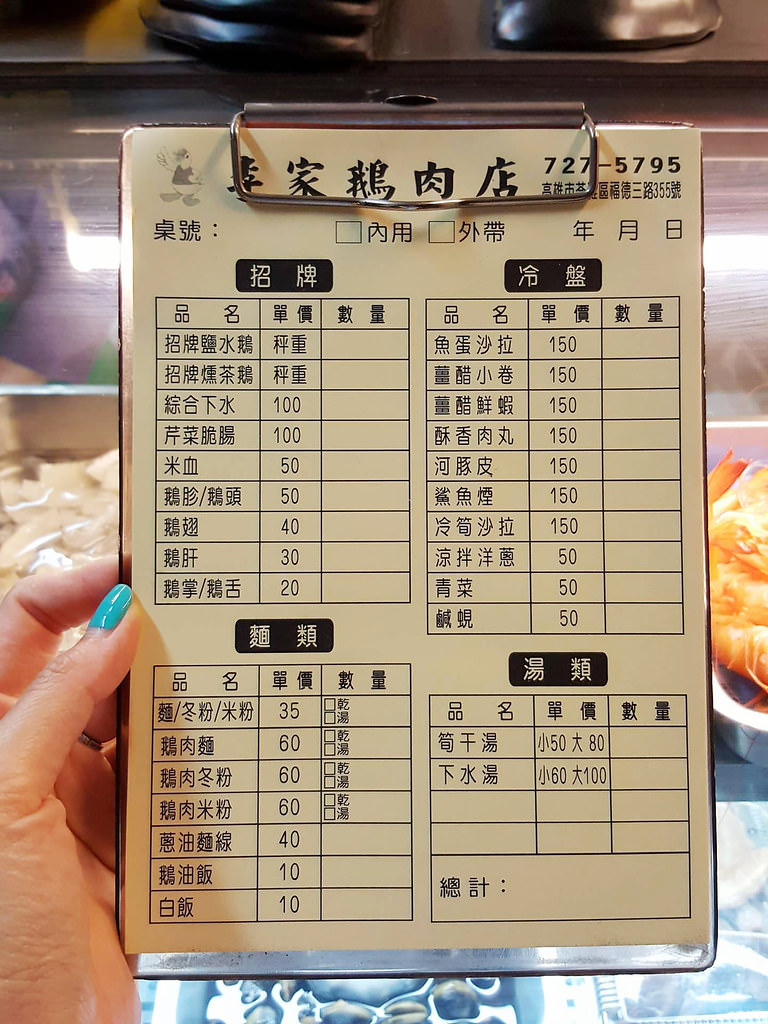 家鵝肉店 727-5795
高雄市苓雅區福德三路355號
桌號： □內用 □外帶 年 月 日
招牌
品名 單價 數量
招牌鹽水鵝 秤重
招牌燻茶鵝 秤重
綜合下水 100
芹菜脆腸 100
米血 50
鵝胗/鵝頭 50
鵝翅 40
鵝肝 30
鵝掌/鵝舌 20
麵類
品名 單價 數量
麵/冬粉/米粉 35 □乾 □湯
鵝肉麵 60 □乾 □湯
鵝肉冬粉 60 □乾 □湯
鵝肉米粉 60 □乾 □湯
蔥油麵線 40
鵝油飯 10
白飯 10
冷盤
品名 單價 數量
魚蛋沙拉 150
薑醋小卷 150
薑醋鮮蝦 150
酥香肉丸 150
河豚皮 150
鯊魚煙 150
冷筍沙拉 150
涼拌洋蔥 50
青菜 50
鹹蜆 50
湯類
品名 單價 數量
筍干湯 小50 大80
下水湯 小60 大100
總計：